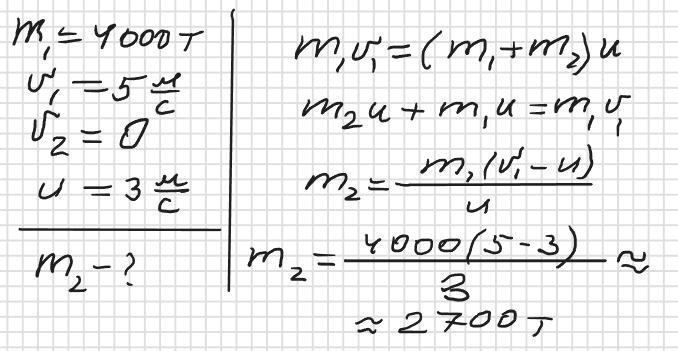 m₁ = 4000 т
v₁ = 5 м/с
v₂ = 0
u = 3 м/с
m₂ - ?
m₁v₁ = (m₁ + m₂)u
m₂u + m₁u = m₁v₁
m₂ = m₁(v₁ - u)/u
m₂ = 4000(5-3)/3 ≈
≈ 2700 т